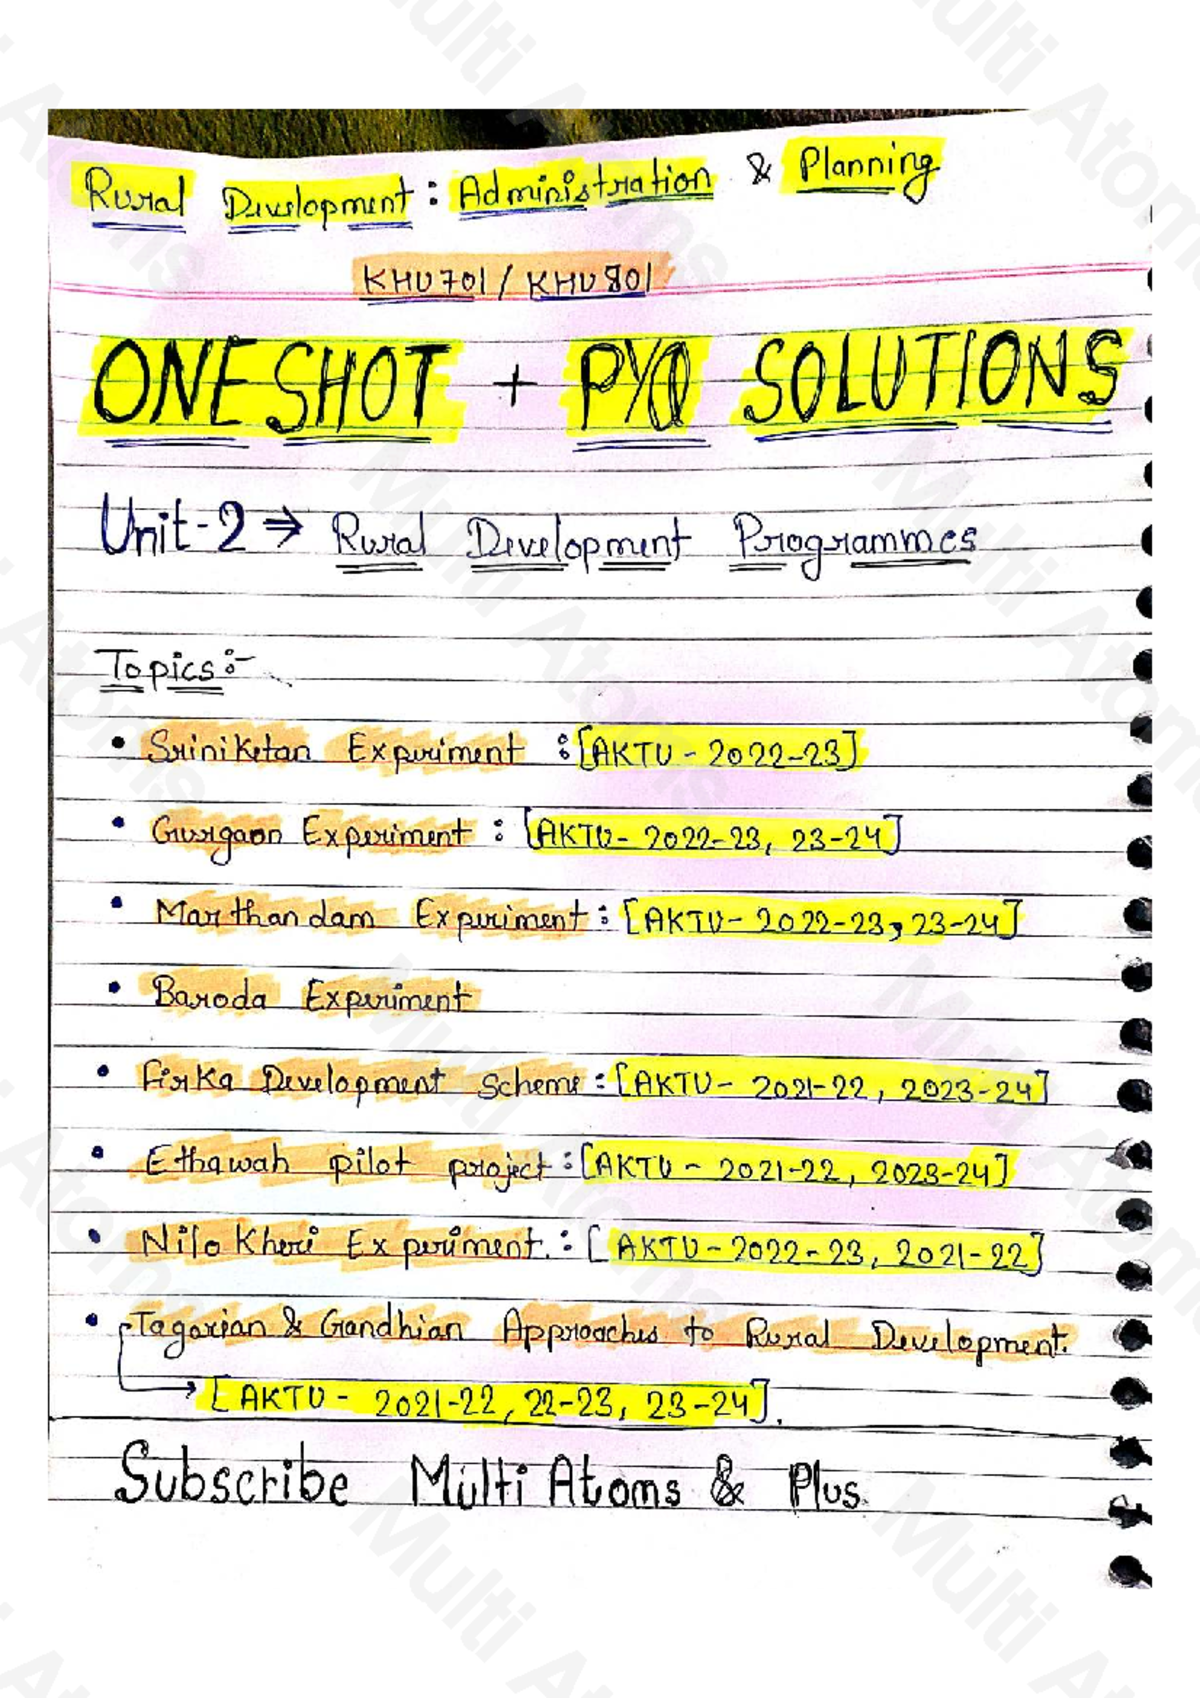 Rural Development : Administration & Planning
KHU701 / KHU801
ONE SHOT + PYQ SOLUTIONS
Unit-2 ⇒ Rural Development Programmes
Topics :-
• Sriniketan Experiment : [AKTU - 2022-23]
• Gurgaon Experiment : [AKTU - 2022-23, 23-24]
• Marthandam Experiment : [AKTU - 2022-23, 23-24]
• Baroda Experiment
• Firka Development Scheme : [AKTU - 2021-22, 2023-24]
• Ethawah pilot project : [AKTU - 2021-22, 2023-24]
• Nilo Kheri Experiment. : [AKTU - 2022-23, 2021-22]
• Tagorian & Gandhian Approaches to Rural Development.
→ [AKTU - 2021-22, 22-23, 23-24].
Subscribe Multi Atoms & Plus.
Multi Atoms